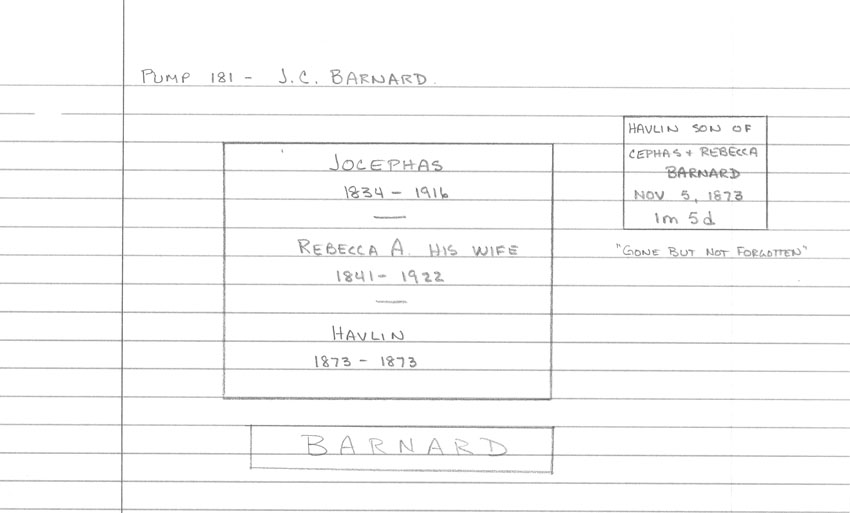 PUMP 181 - J.C. BARNARD.
JOCEPHAS
1834 - 1916
REBECCA A. HIS WIFE
1841 - 1922
HAVLIN
1873 - 1873
BARNARD
HAVLIN SON OF
CEPHAS + REBECCA
BARNARD
NOV 5, 1873
1m 5d
"GONE BUT NOT FORGOTTEN"